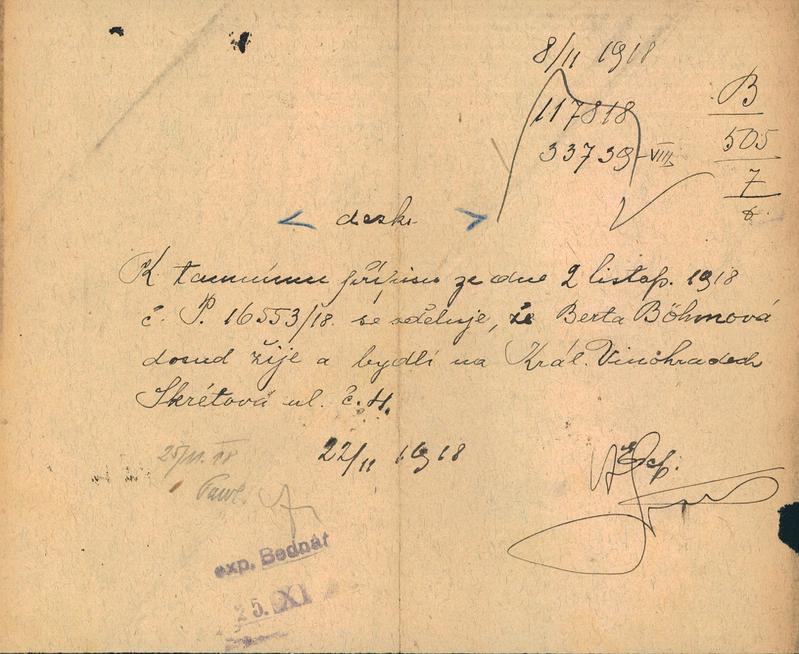 8/11 1918
117818
33739-VIII
B
505
7
desk.
K tamnímu přípisu ze dne 2 listop. 1918
č. P. 16553/18. se sděluje, že Berta Böhmová
dosud žije a bydlí na Král. Vinohradech
Skrétová ul. č. 4.
22/11 1918
25/11. 18
exp. Bednář
25. XI